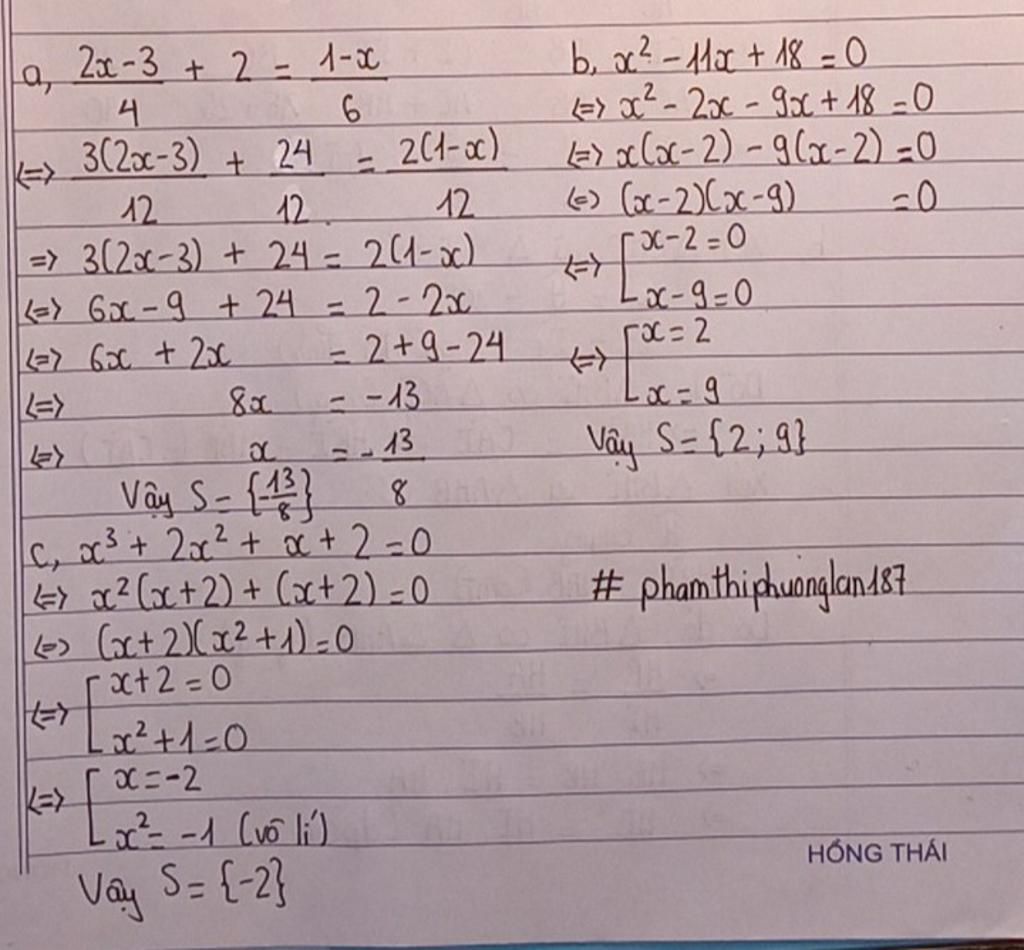 a, (2x-3)/4 + 2 = (1-x)/6
<=> 3(2x-3)/12 + 24/12 = 2(1-x)/12
=> 3(2x-3) + 24 = 2(1-x)
<=> 6x-9 + 24 = 2 - 2x
<=> 6x + 2x = 2+9-24
<=> 8x = -13
<=> x = -13/8
Vậy S = {-13/8}
b, x² - 11x + 18 = 0
<=> x² - 2x - 9x + 18 = 0
<=> x(x-2) - 9(x-2) = 0
<=> (x-2)(x-9) = 0
<=> [x-2=0
x-9=0
<=> [x=2
x=9
Vậy S={2;9}
c, x³ + 2x² + x + 2 = 0
<=> x²(x+2) + (x+2) = 0
<=> (x+2)(x²+1)=0
<=> [x+2=0
x²+1=0
<=> [x=-2
x²=-1 (vô lí)
Vậy S={-2}
# phamthiphuonglan187
HỒNG THÁI